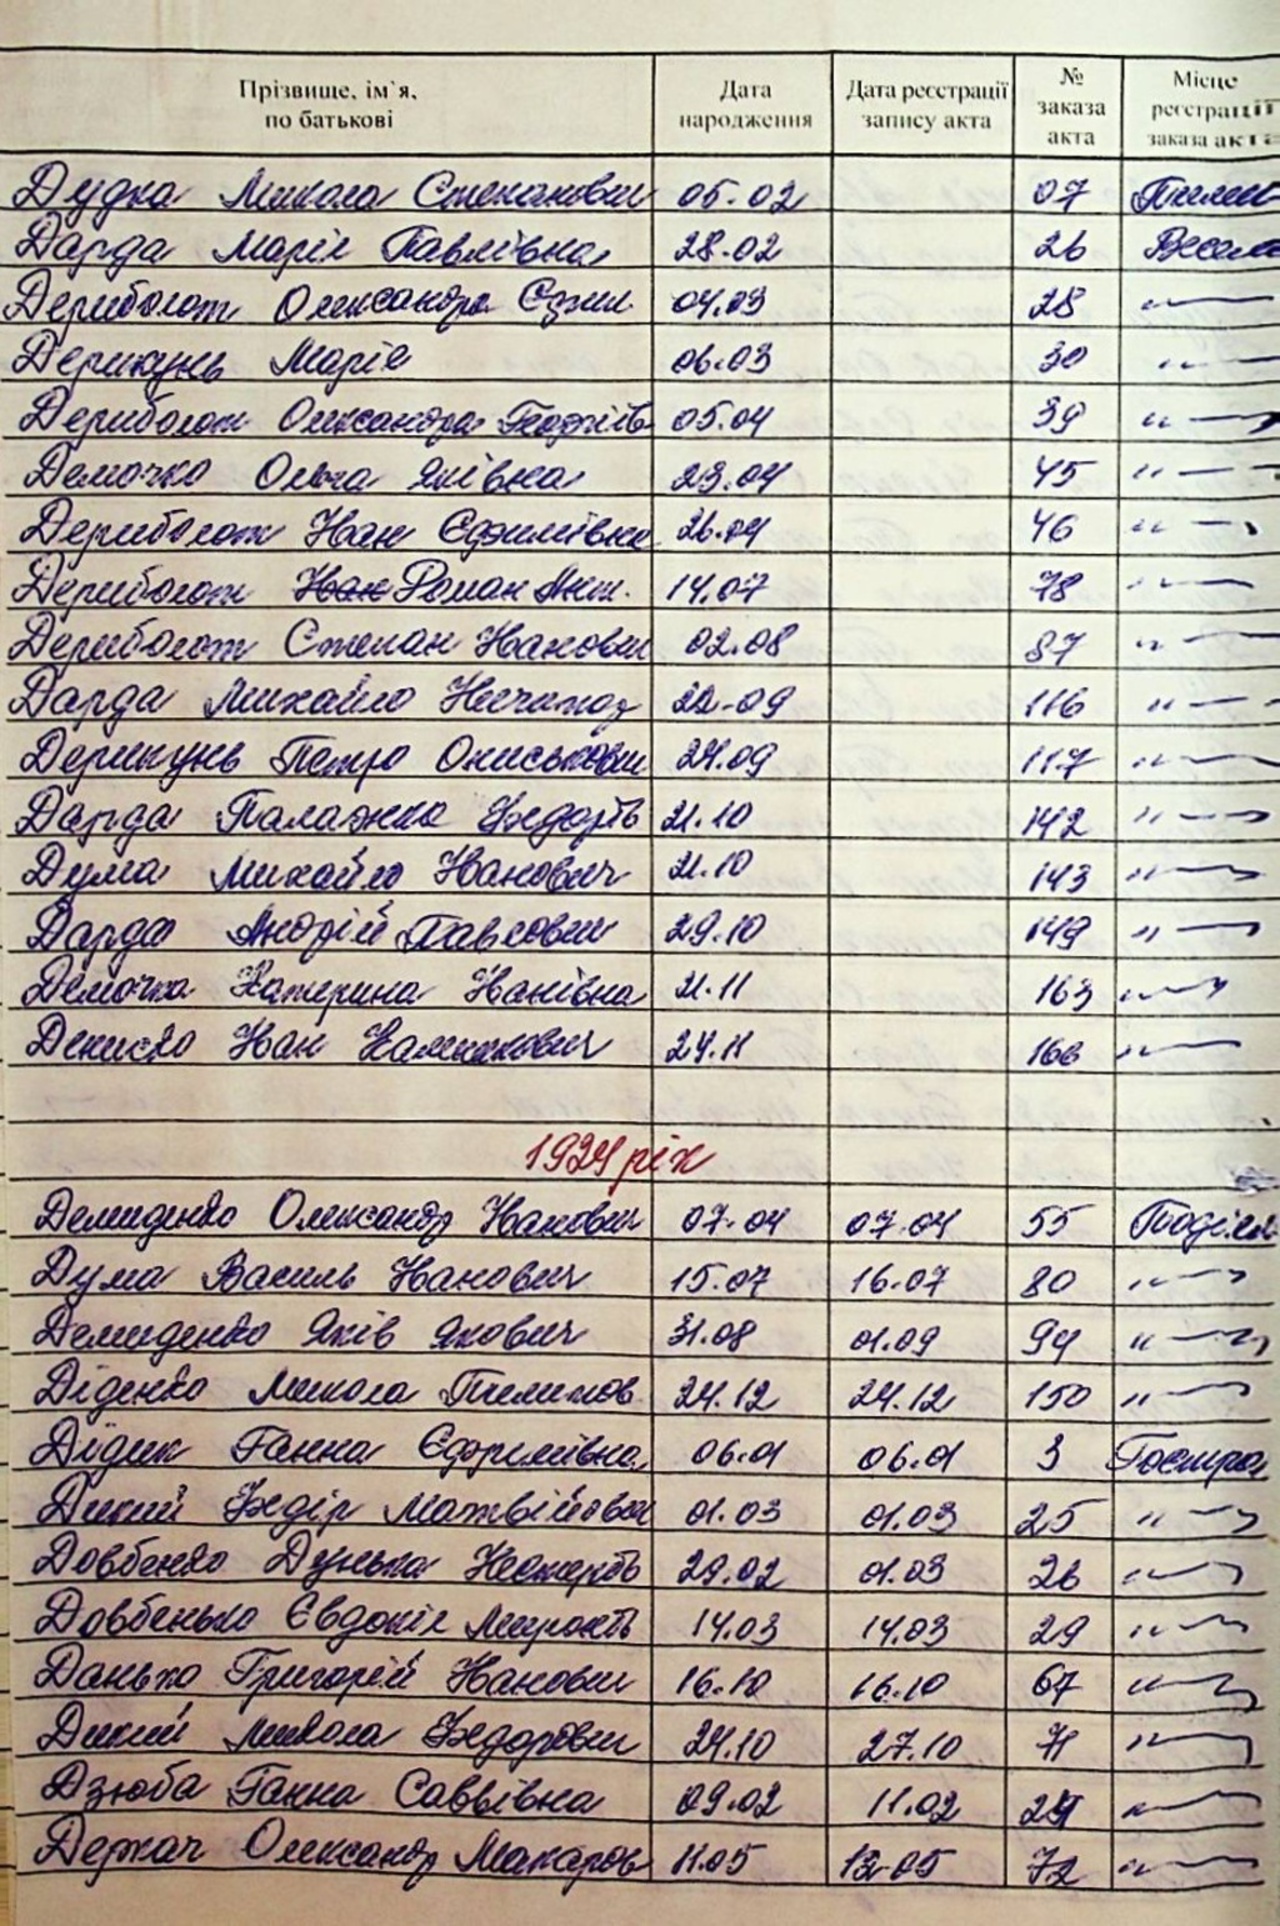 Прізвище, ім`я, по батькові Дата народження Дата реєстрації запису акта № заказа акта Місце реєстрації заказа акта
Дудка Микола Степанович 05.02 07 Пилип
Дарда Марія Павлівна 28.02 26 Весел
Дериболот Олександра Єфим. 04.03 28 "—
Дерикунь Марія 06.03 30 "—
Дериболот Олександра Георгіїв 05.04 39 "—
Демочко Ольга Яківна 23.04 45 "—
Дериболот Іван Єфимівна 26.04 46 "—
Дериболот Іван Роман Ант. 14.07 78 "—
Дериболот Степан Іванович 02.08 87 "—
Дарда Михайло Нечипор 22.09 116 "—
Дерикунь Петро Ониськович 24.09 117 "—
Дарда Палажка Федорів 21.10 142 "—
Дума Михайло Іванович 21.10 143 "—
Дарда Андрій Павлович 29.10 149 "—
Демочка Катерина Іванівна 21.11 163 "—
Дениско Іван 24.11 166 "—
1924 рік
Демиденко Олександр Іванович 07.04 07.04 55 Подільс
Дума Василь Іванович 15.07 16.07 80 "—
Демиденко Яків Якович 31.08 01.09 94 "—
Діденко Микола Пилипов 24.12 24.12 150 "—
Дідик Ганна Єфремівна 06.01 06.01 3 Гостра
Дикий Федір Матвійович 01.03 01.03 25 "—
Довбенко Дунька Нестерів 29.02 01.03 26 "—
Довбенько Євдокія Миронів 14.03 14.03 29 "—
Данько Григорій Іванович 16.10 16.10 67 "—
Дикий Микола Федорович 24.10 27.10 71 "—
Дзюба Ганна Саввівна 09.02 11.02 24 "—
Держач Олександр Макаров 11.05 13.05 72 "—